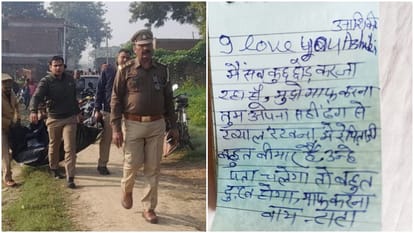 I love you
मैं सब कुछ छोड़ कर जा
रहा हूँ, मुझे माफ करना
तुम अपना सही ढंग से
ख्याल रखना मेरे पिताजी
बहुत बीमार हैं, उन्हें
पता चलेगा तो बहुत
दुःख होगा, माफ करना
बाय - टाटा